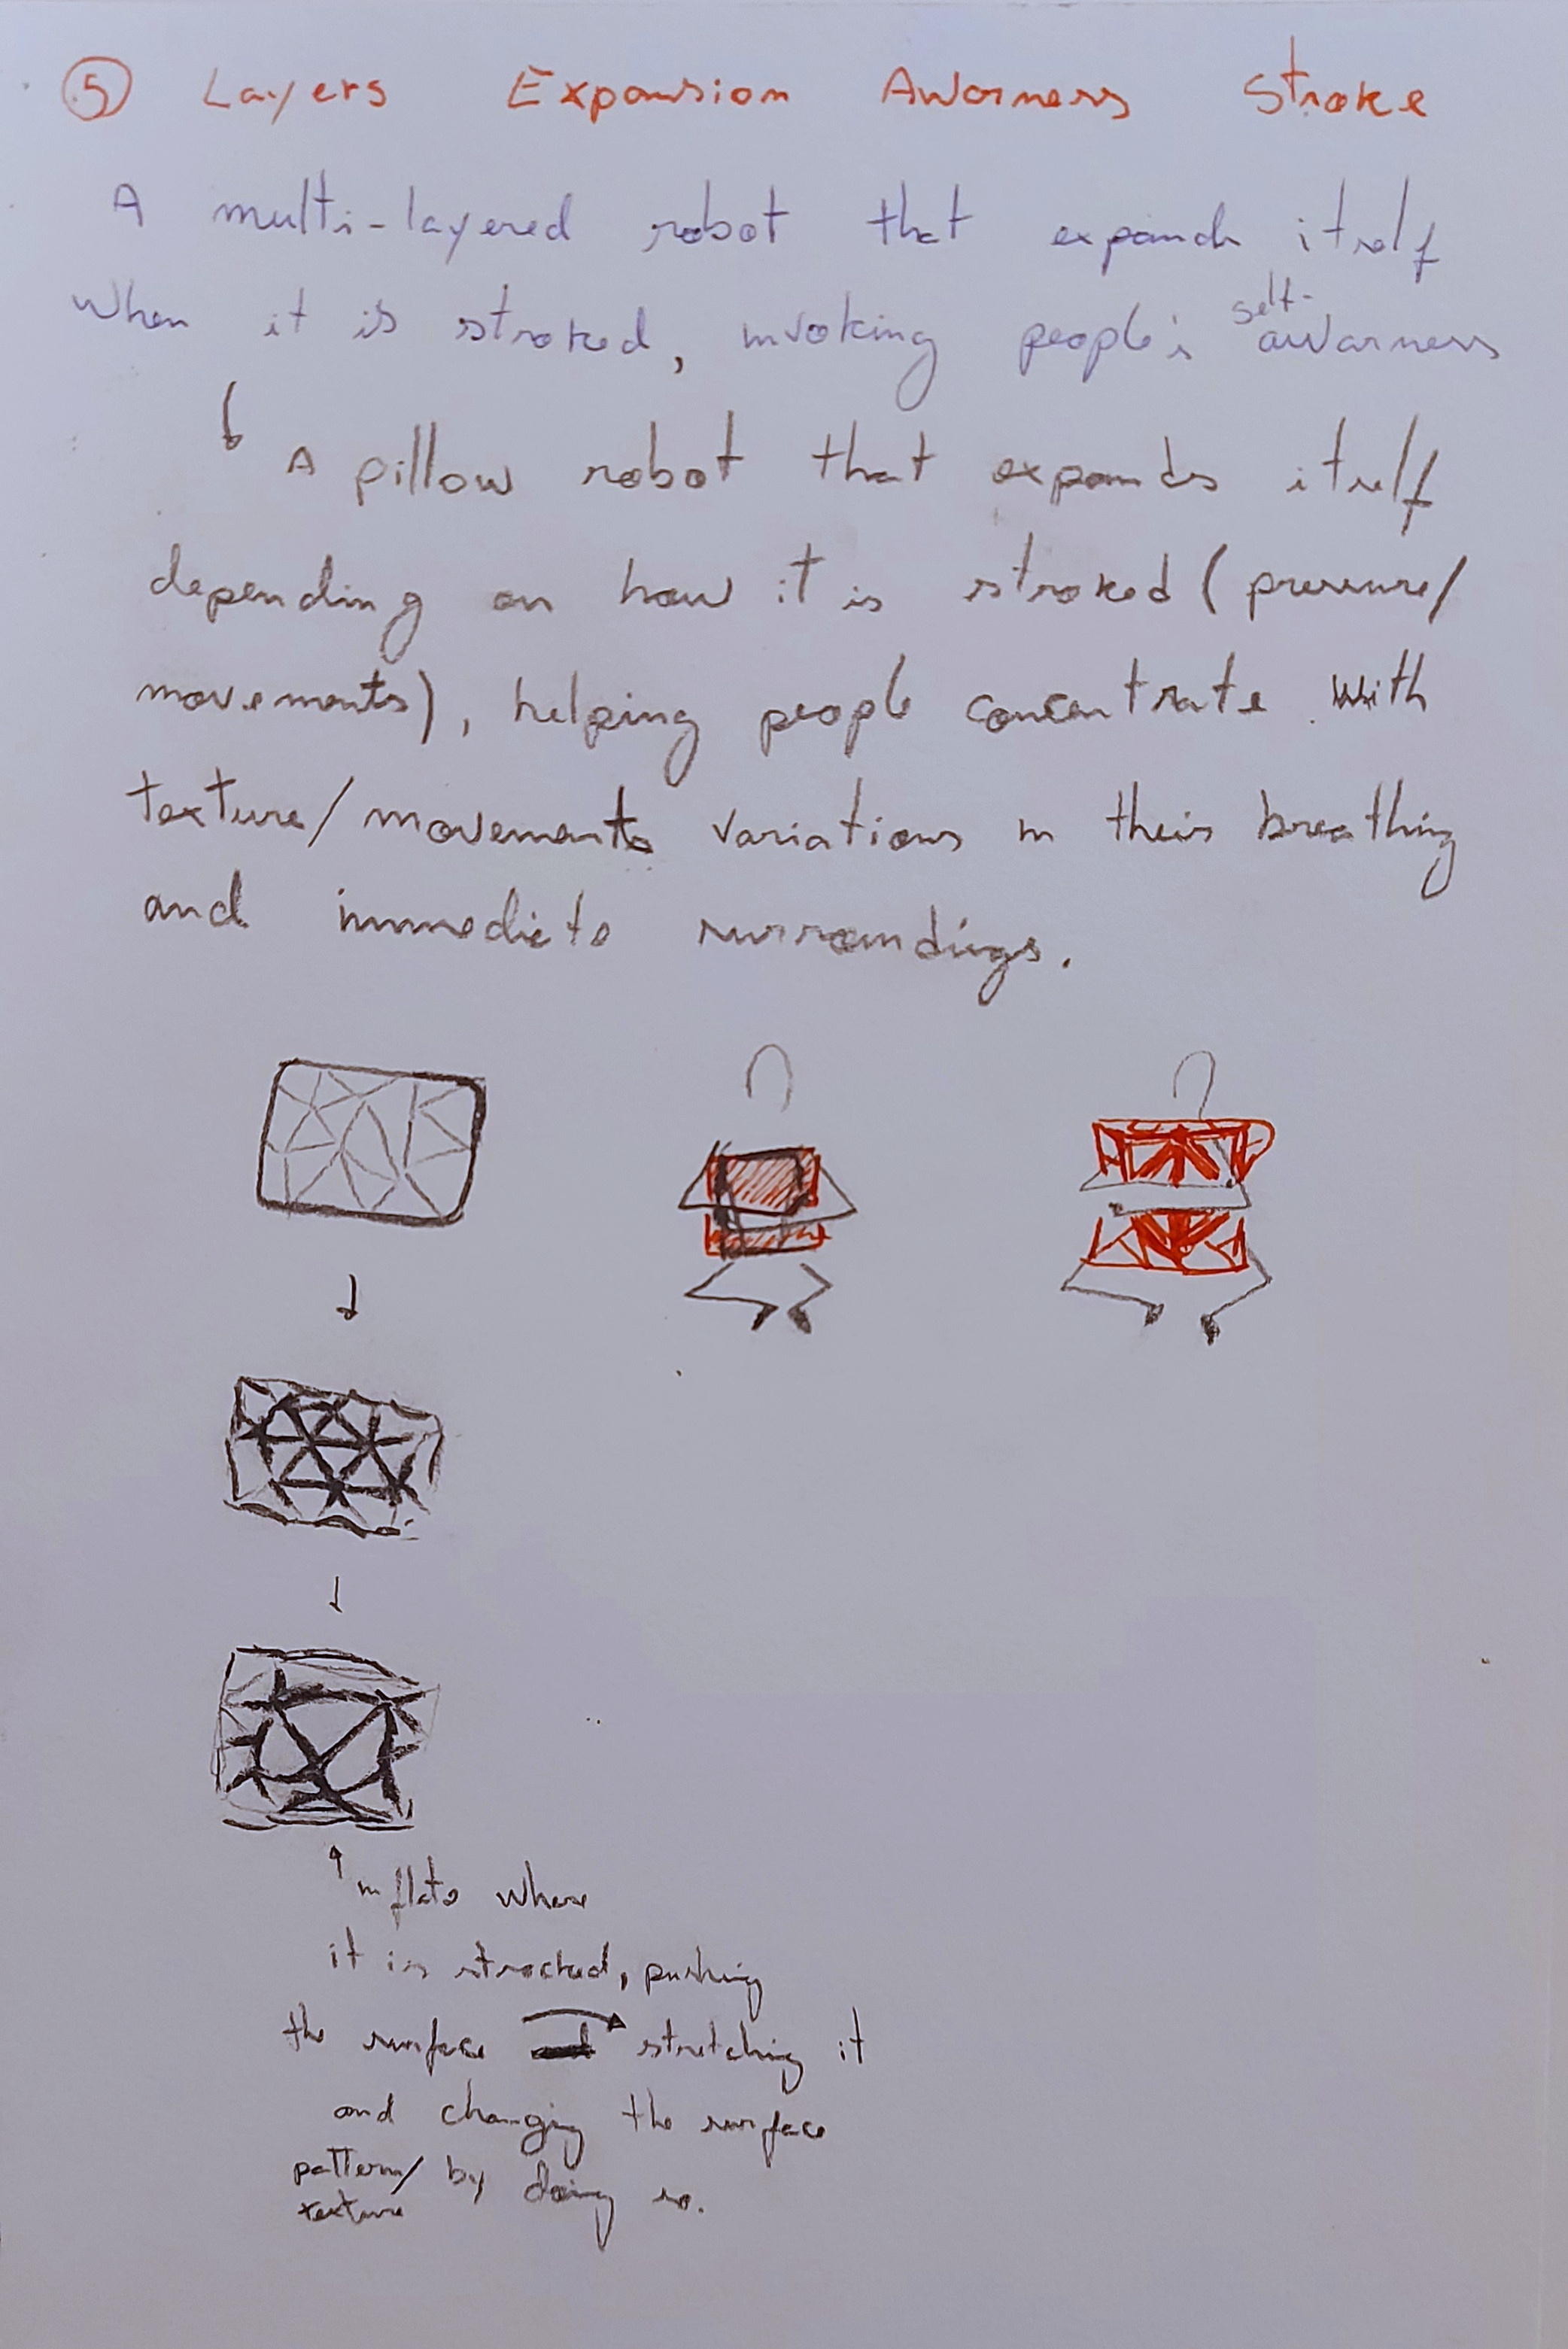 5 Layers Expansion Awarness Stroke
A multi-layered robot that expands itself
when it is stroked, invoking people's self-awarness
A pillow robot that expands itself
depending on how it is stroked (pressure/
movements), helping people concentrate with
texture/movements variations in their breathing
and immediate surroundings.
inflate where
it is strocked, pushing
the surface stretching it
and changing the surface
pattern/ by doing so.
texture